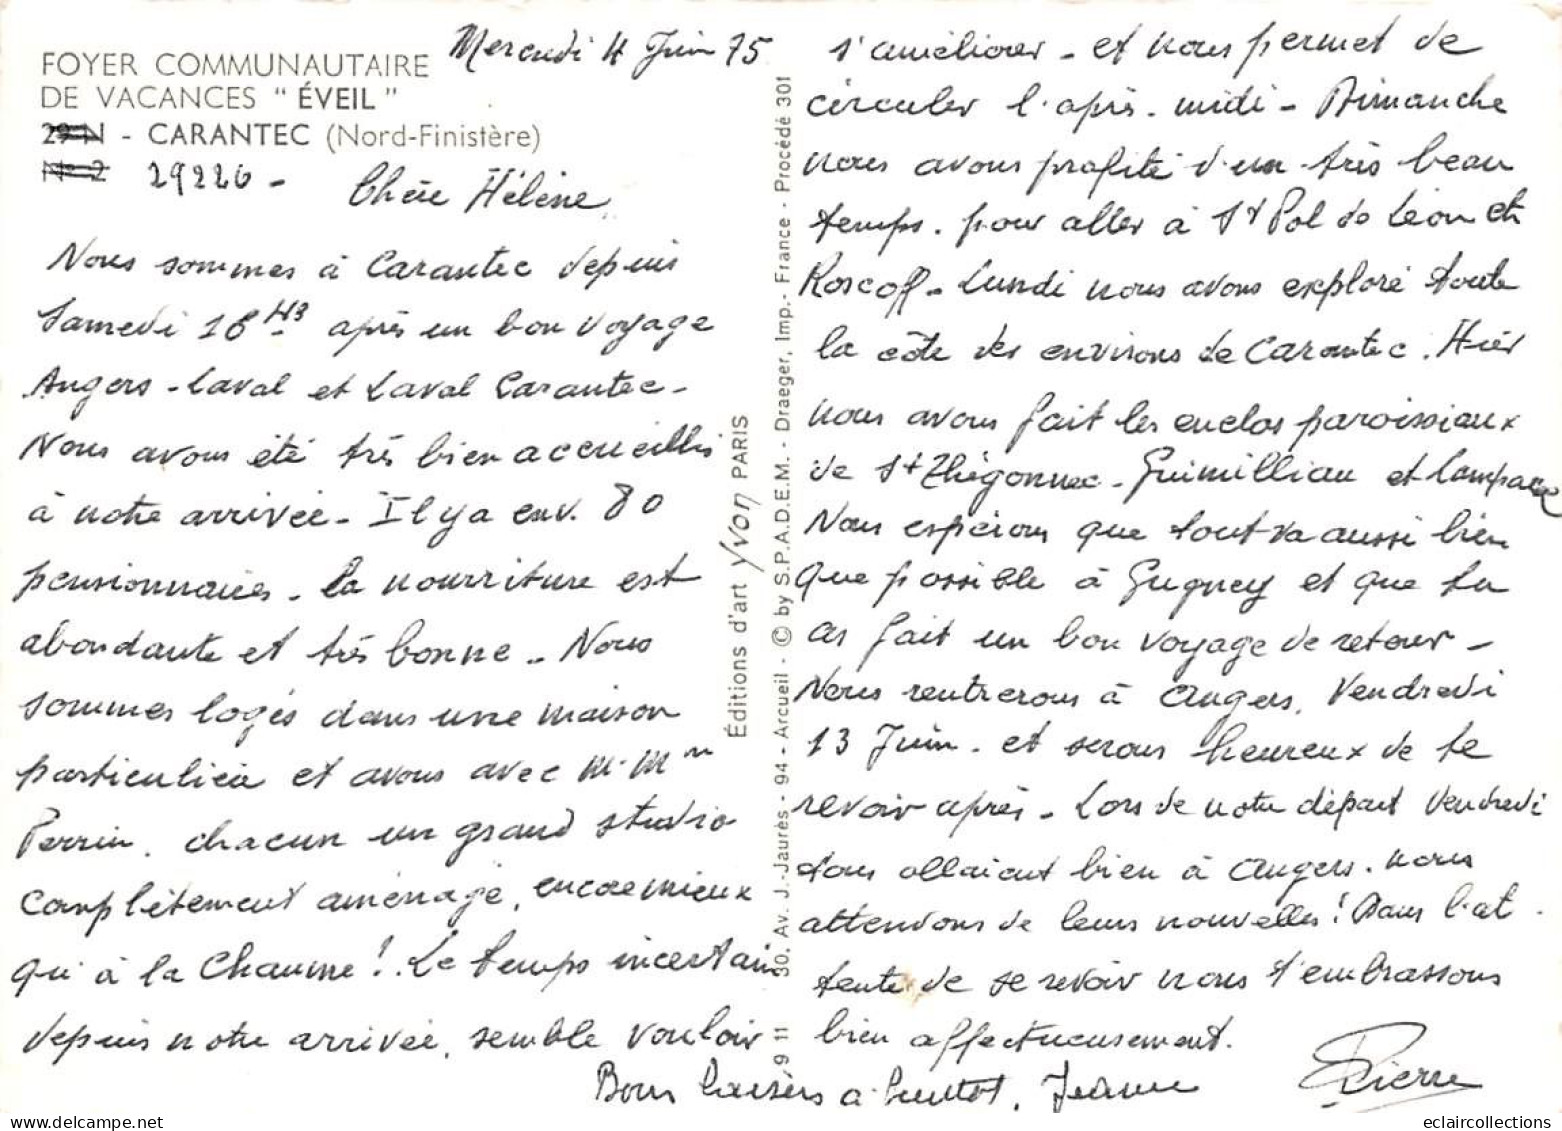 Mercredi 4 Juin 75
FOYER COMMUNAUTAIRE
DE VACANCES " ÉVEIL "
29 N - CARANTEC (Nord-Finistère)
N° 2 29226 -
Chère Hélène,
Nous sommes à Carantec depuis
Samedi 18 H3 après un bon voyage
Angers - Laval et Laval Carantec -
Nous avons été très bien accueillis
à notre arrivée - Il y a env. 80
pensionnaires - La nourriture est
abondante et très bonne - Nous
sommes logés dans une maison
particulière et avons avec M. Mme
Perrin, chacun un grand studio
complètement aménagé, encore mieux
qu'à la Chaume !. Le temps incertain
depuis notre arrivée, semble vouloir
s'améliorer - et nous permet de
circuler l'après-midi - Dimanche
nous avons profité d'un très beau
temps. pour aller à St Pol de Léon et
Roscoff - Lundi nous avons exploré toute
la côte des environs de Carantec. Hier
nous avons fait les enclos paroissiaux
de St Thégonnec - Guimilliau et Lampaul
Nous espérons que tout va aussi bien
que possible à Gugney et que tu
as fait un bon voyage de retour -
Nous rentrerons à Angers, Vendredi
13 Juin - et serons heureux de te
revoir après - Lors de notre départ Vendredi
tous allaient bien à Angers. nous
attendons de leurs nouvelles ! Dans l'at-
tente de se revoir nous t'embrassons
bien affectueusement.
Pierre
Bons baisers à bientôt, Jeanne
Éditions d'art Yvon PARIS
9 11 30, Av. J.-Jaurès - 94 - Arcueil - © by S.P.A.D.E.M. - Draeger, Imp.- France - Procédé 301
eclaircollections